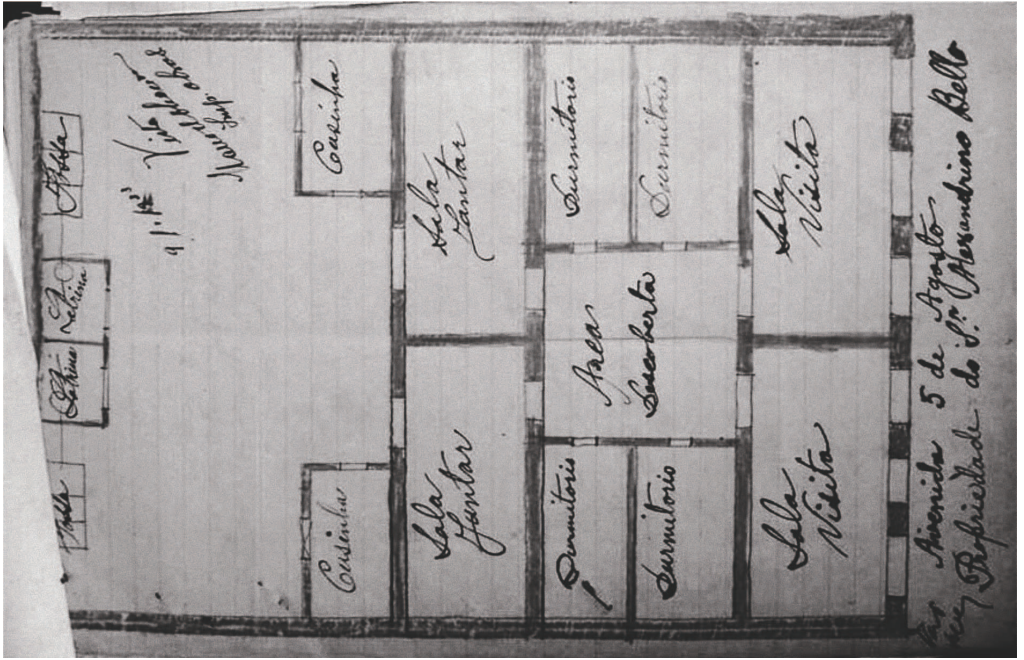 Latrina
Latrina
Visto
Cusinha
Cusinha
Sala
Jantar
Sala
Jantar
Durmitorio
Durmitorio
Area
Descoberta
Durmitorio
Durmitorio
Sala
Visita
Sala
Visita
Avenida 5 de Agosto
Propriedade do Snr. Alexandrino Bello